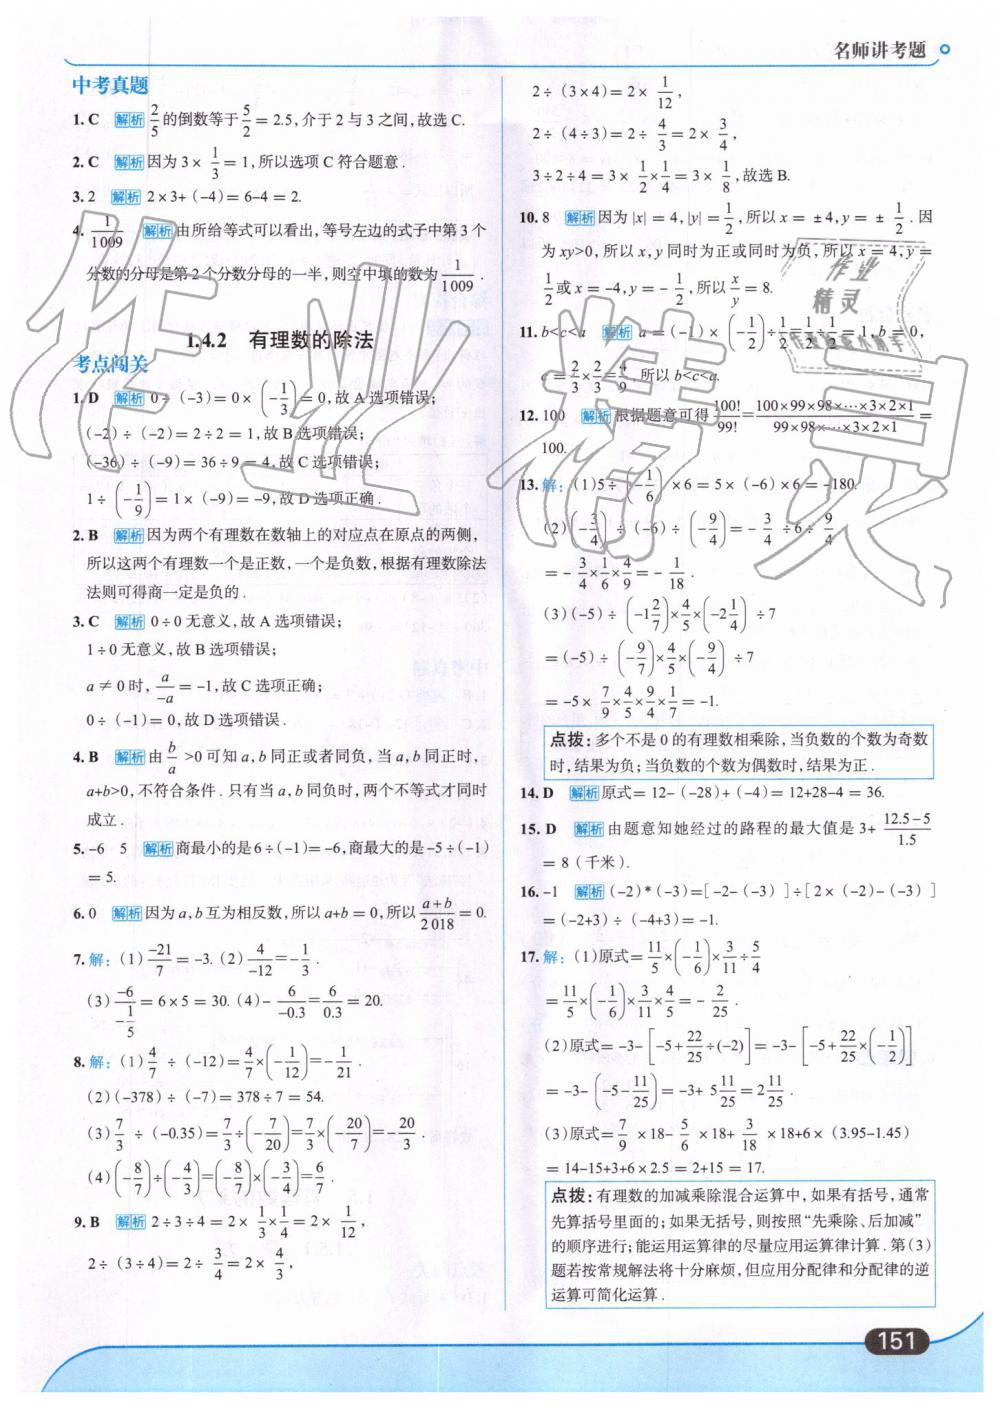 名师讲考题
中考真题
1. C 解析 2/5的倒数等于5/2=2.5,介于2与3之间,故选C.
2. C 解析 因为3×1/3=1,所以选项C符合题意.
3. 2 解析 2×3+(-4)=6-4=2.
4. 1/1009 解析 由所给等式可以看出,等号左边的式子中第3个
分数的分母是第2个分数分母的一半,则空中填的数为1/1009.
1.4.2 有理数的除法
考点闯关
1. D 解析 0÷(-3)=0×(-1/3)=0,故A选项错误;
(-2)÷(-2)=2÷2=1,故B选项错误;
(-36)÷(-9)=36÷9=4,故C选项错误;
1÷(-1/9)=1×(-9)=-9,故D选项正确.
2. B 解析 因为两个有理数在数轴上的对应点在原点的两侧,
所以这两个有理数一个是正数,一个是负数,根据有理数除法
法则可得商一定是负的.
3. C 解析 0÷0无意义,故A选项错误;
1÷0无意义,故B选项错误;
a≠0时,a/-a=-1,故C选项正确;
0÷(-1)=0,故D选项错误.
4. B 解析 由b/a>0可知a,b同正或者同负,当a,b同正时,
a+b>0,不符合条件.只有当a,b同负时,两个不等式才同时
成立.
5. -6 5 解析 商最小的是6÷(-1)=-6,商最大的是-5÷(-1)
=5.
6. 0 解析 因为a,b互为相反数,所以a+b=0,所以a+b/2 018=0.
7. 解:(1)-21/7=-3.(2)4/-12=-1/3.
(3)-6/-1/5=6×5=30.(4)-6/-0.3=6/0.3=20.
8. 解:(1)4/7÷(-12)=4/7×(-1/12)=-1/21.
(2)(-378)÷(-7)=378÷7=54.
(3)7/3÷(-0.35)=7/3÷(-7/20)=7/3×(-20/7)=-20/3.
(4)(-8/7)÷(-4/3)=(-8/7)×(-3/4)=6/7.
9. B 解析 2÷3÷4=2×1/3×1/4=2×1/12,
2÷(3÷4)=2÷3/4=2×4/3,
2÷(3×4)=2×1/12,
2÷(4÷3)=2÷4/3=2×3/4,
3÷2÷4=3×1/2×1/4=3×1/8,故选B.
10. 8 解析 因为|x|=4,|y|=1/2,所以x=±4,y=±1/2.因
为xy>0,所以x,y同时为正或同时为负,所以x=4,y=
1/2或x=-4,y=-1/2,所以x/y=8.
11. b<c<a 解析 a=(-1)×(-1/2)÷1/2=1/2÷1/2=1,b=0,
c=2/3×2/3=4/9,所以b<c<a.
12. 100 解析 根据题意可得100!/99!=100×99×98×…×3×2×1/99×98×…×3×2×1=
100.
13. 解:(1)5÷(-1/6)×6=5×(-6)×6=-180.
(2)(-3/4)÷(-6)÷(-9/4)=-3/4÷6÷9/4
=-3/4×1/6×4/9=-1/18.
(3)(-5)÷(-1 2/7)×4/5×(-2 1/4)÷7
=(-5)÷(-9/7)×4/5×(-9/4)÷7
=-5×7/9×4/5×9/4×1/7=-1.
点拨:多个不是0的有理数相乘除,当负数的个数为奇数
时,结果为负;当负数的个数为偶数时,结果为正.
14. D 解析 原式=12-(-28)+(-4)=12+28-4=36.
15. D 解析 由题意知她经过的路程的最大值是3+12.5-5/1.5
=8(千米).
16. -1 解析 (-2)*(-3)=[-2-(-3)]÷[2×(-2)-(-3)]
=(-2+3)÷(-4+3)=-1.
17. 解:(1)原式=11/5×(-1/6)×3/11÷5/4
=11/5×(-1/6)×3/11×4/5=-2/25.
(2)原式=-3-[-5+22/25÷(-2)]=-3-[-5+22/25×(-1/2)]
=-3-(-5-11/25)=-3+5 11/25=2 11/25.
(3)原式=7/9×18-5/6×18+3/18×18+6×(3.95-1.45)
=14-15+3+6×2.5=2+15=17.
点拨:有理数的加减乘除混合运算中,如果有括号,通常
先算括号里面的;如果无括号,则按照“先乘除、后加减”
的顺序进行;能运用运算律的尽量应用运算律计算.第(3)
题若按常规解法将十分麻烦,但应用分配律和分配律的逆
运算可简化运算.
151
作业精灵
作业
精灵